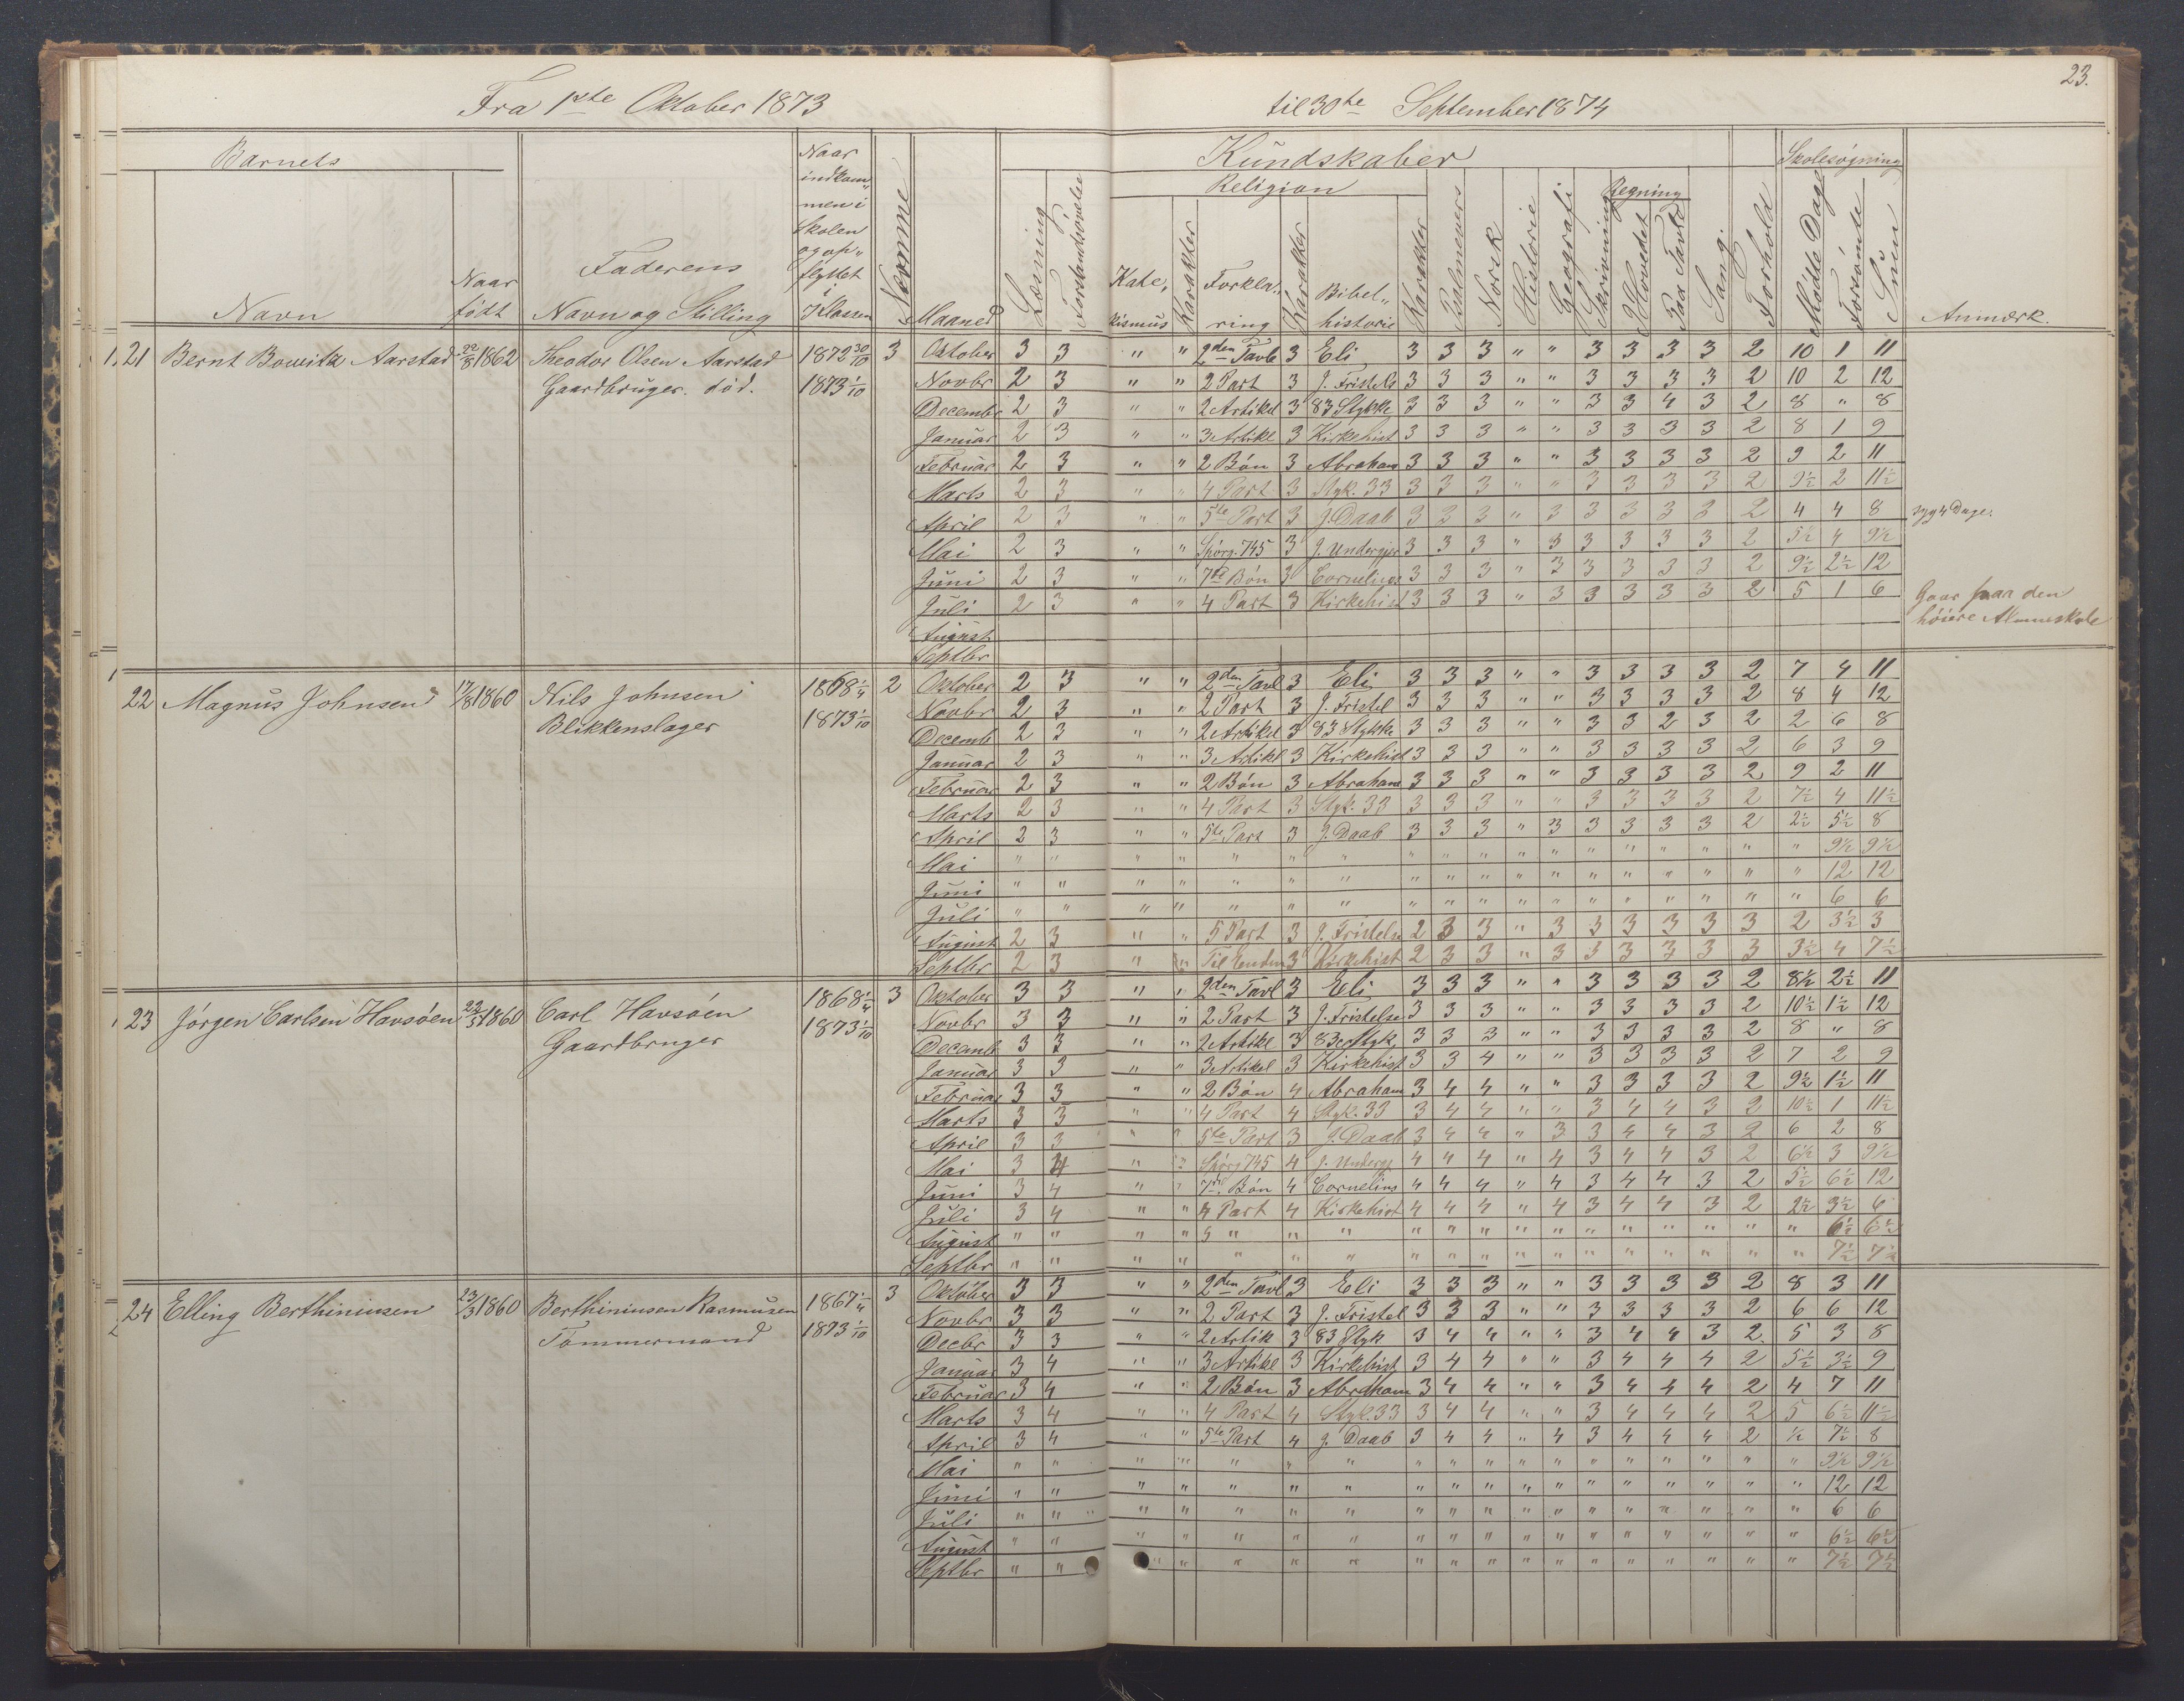 23.
Fra 1ste Oktober 1873 til 30te September 1874
Barnets
Navn
Naar født
Faderens Navn og Stilling
Naar indkommen i Skolen og opflyttet i Klassen
Maaned
Læsning
Forstandsøvelse
Kundskaber
Religion
Katekismus
Karakter
Forklaring
Karakter
Bibelhistorie
Karakter
Psalmevers
Norsk
Historie
Geografi
Skrivning
Regning
i Hovedet
paa Tavle
Sang.
Forhold
Skolesøgning
Mødte Dage
Forsømte
Sum
Anmærk.
21 Bernt Bowitz Aarstad 1862 Theodor Olsen Aarstad 1872 30/10 3 Oktober 3 3 " " 2den Tavle 3 Eli 3 3 3 " " 3 3 3 3 2 10 1 11
Gaardbruger. død. 1873 1/10 Novbr 2 3 " " 2 Part 3 J. Fristels 3 3 3 " " 3 3 3 3 2 10 2 12
Decembr 2 3 " " 2 Artikel 3 83 Stykke 3 3 3 " " 3 3 4 3 2 8 " 8
Januar 2 3 " " 3 Artikl 3 Kirkehist 3 3 3 " " 3 3 3 3 2 8 1 9
Februar 2 3 " " 2 Bøn 3 Abraham 3 3 3 " " 3 3 3 3 2 9 2 11
Marts 2 3 " " 4 Part 3 Styk. 33 3 3 3 " " 3 3 3 3 2 9½ 2 11½
April 2 3 " " 5te Part 3 J. Daab 3 3 3 " 3 3 3 3 3 2 4 4 8 syg 4 Dage.
Mai 2 3 " " Spørg. 745 3 J. Undergjer 3 3 3 " 3 3 3 3 3 2 5½ 4 9½
Juni 2 3 " " 7de Bøn 3 Cornelius 3 3 3 " 3 3 3 3 3 2 9½ 2½ 12
Juli 2 3 " " 4 Part 3 Kirkehist 3 3 3 " 3 3 3 3 3 2 5 1 6 Gaar paa den
August høiere Almueskole
Septbr
22 Magnus Johnsen 17/8 1860 Nils Johnsen 1868 1/4 2 Oktober 2 3 " " 2den Tavl 3 Eli 3 3 3 " " 3 3 3 3 2 7 4 11
Blikkenslager 1873 1/10 Novbr 2 3 " " 2 Part 3 J. Fristel 3 3 3 " " 3 3 3 3 2 8 4 12
Decemb 2 3 " " 2 Artikel 3 83 Stykke 3 3 3 " " 3 3 2 3 2 2 6 8
Januar 2 3 " " 3 Artikl 3 Kirkehist 3 3 3 " " 3 3 3 3 2 6 3 9
Februar 2 3 " " 2 Bøn 3 Abraham 3 3 3 " " 3 3 3 3 2 9 2 11
Marts 2 3 " " 4 Part 3 Styk. 33 3 3 3 " " 3 3 3 3 2 7½ 4 11½
April 2 3 " " 5te Part 3 J. Daab 3 3 3 " 3 3 3 3 3 2 2½ 5½ 8
Mai " " " " " " " " " " " " " " " " " " 9½ 9½
Juni " " " " " " " " " " " " " " " " " " 12 12
Juli " " " " " " " " " " " " " " " " " " 6 6
August 2 3 " " 5 Part 3 J. Fristelse 2 3 3 " 3 3 3 3 3 3 2 3½ 3
Septbr 2 3 " " Til Enden 3 Kirkehist 2 3 3 " 3 3 3 3 3 3 3½ 4 7½
23 Jørgen Carlsen Havsøen 1860 Carl Havsøen 1868 1/4 3 Oktober 3 3 " " 2den Tavl 3 Eli 3 3 3 " " 3 3 3 3 2 8½ 2½ 11
Gaardbruger 1873 1/10 Novbr 3 3 " " 2 Part 3 J. Fristelse 3 3 3 " " 3 3 3 3 2 10½ 1½ 12
Decemb 3 3 " " 2 Artikl 3 83 Styk 3 3 3 " " 3 3 3 3 2 8 " 8
Januar 3 3 " " 3 Artikel 3 Kirkehist 3 3 4 " " 3 3 3 3 2 7 2 9
Februar 3 3 " " 2 Bøn 4 Abraham 3 4 4 " " 3 3 3 3 2 9½ 1½ 11
Marts 3 3 " " 4 Part 4 Styk. 33 3 4 4 " " 3 4 4 3 2 10½ 1 11½
April 3 3 " " 5te Part 3 J. Daab 3 4 4 " 3 3 4 4 3 2 6 2 8
Mai 3 4 " " Spørg 745 4 J. Undergj 4 4 4 " 4 3 4 4 3 2 6½ 3 9½
Juni 3 4 " " 7de Bøn 4 Cornelius 4 4 4 " 4 3 4 4 3 2 5½ 6½ 12
Juli 3 4 " " 4 Part 4 Kirkehist 4 4 4 " 4 3 4 4 3 2 2½ 3½ 6
August " " " " " " " " " " " " " " " " " " 6½ 6½
Septbr " " " " " " " " " " " " " " " " " " 7½ 7½
24 Elling Berthiniusen 23/3 1860 Berthiniusen Rasmusen 1867 1/4 3 Oktober 3 3 " " 2den Tavl 3 Eli 3 3 3 " " 3 3 3 3 2 8 3 11
Tømmermand 1873 1/10 Novbr 3 3 " " 2 Part 3 J. Fristel 3 3 3 " " 3 3 3 3 2 6 6 12
Decbr 3 3 " " 2 Artik 3 83 Styk 3 4 4 " " 3 4 4 3 2 5 3 8
Januar 3 4 " " 3 Artikl 3 Kirkehist 3 4 4 " " 3 4 4 4 2 5½ 3½ 9
Februar 3 4 " " 2 Bøn 3 Abraham 3 4 4 " " 3 4 4 4 2 4 7 11
Marts 3 4 " " 4 Part 4 Styk. 33 3 4 4 " " 3 4 4 4 2 5 6½ 11½
April 3 4 " " 5te Part 4 J. Daab 3 4 4 " 4 3 4 4 4 2 ½ 7½ 8
Mai " " " " " " " " " " " " " " " " " " 9½ 9½
Juni " " " " " " " " " " " " " " " " " " 12 12
Juli " " " " " " " " " " " " " " " " " " 6 6
August " " " " " " " " " " " " " " " " " " 6½ 6½
Septbr " " " " " " " " " " " " " " " " " " 7½ 7½